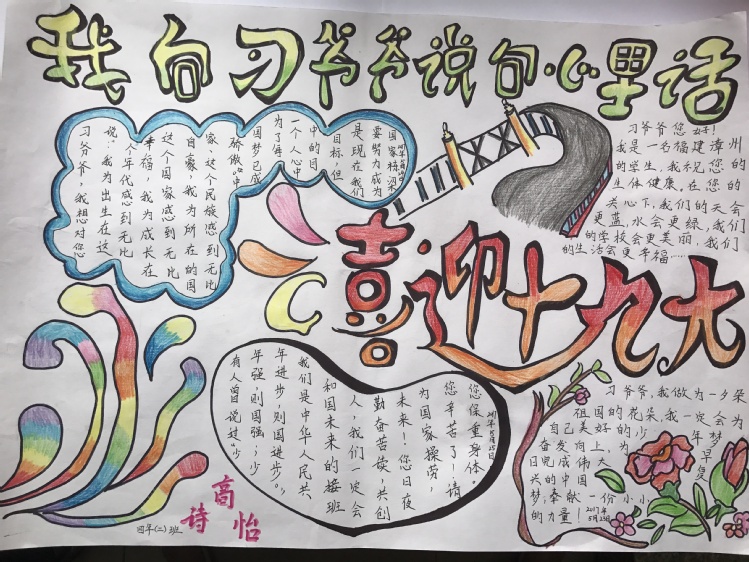 我向习爷爷说句心里话
习爷爷，我想对您
说：我为出生在这
个年代感到无比
幸福，我为成长在
这个国家感到无比
自豪，我为所在的国
家、这个民族感到无比
骄傲。中
国梦已成
为了
一个人心中
中的目
目标，但
是现在我们
要努力成为
国家栋梁
习爷爷您好！
我是一名福建漳州
的学生，我祝您的
身体健康。在您的
关心下，我们的天会
更蓝，水会更绿，我们
的学校会更美丽，我们
的生活会更幸福……
喜迎十九大
有人曾说过“少
年强，则国强；少
年进步，则国进步”。
我们是中华人民共
和国未来的接班
人，我们一定会
勤奋苦读，共创
未来！您日夜
为国家操劳，
您辛苦了！请
您保重身体。
2017年5月25日
习爷爷，我做为一夕朵
祖国的花朵，我一定会为
自己美好的少年梦
奋发向上，为早
日完成伟大复
兴的中国
梦，奉献一份小小
的力量！
2017年
5月25日
高诗怡
四年(二)班